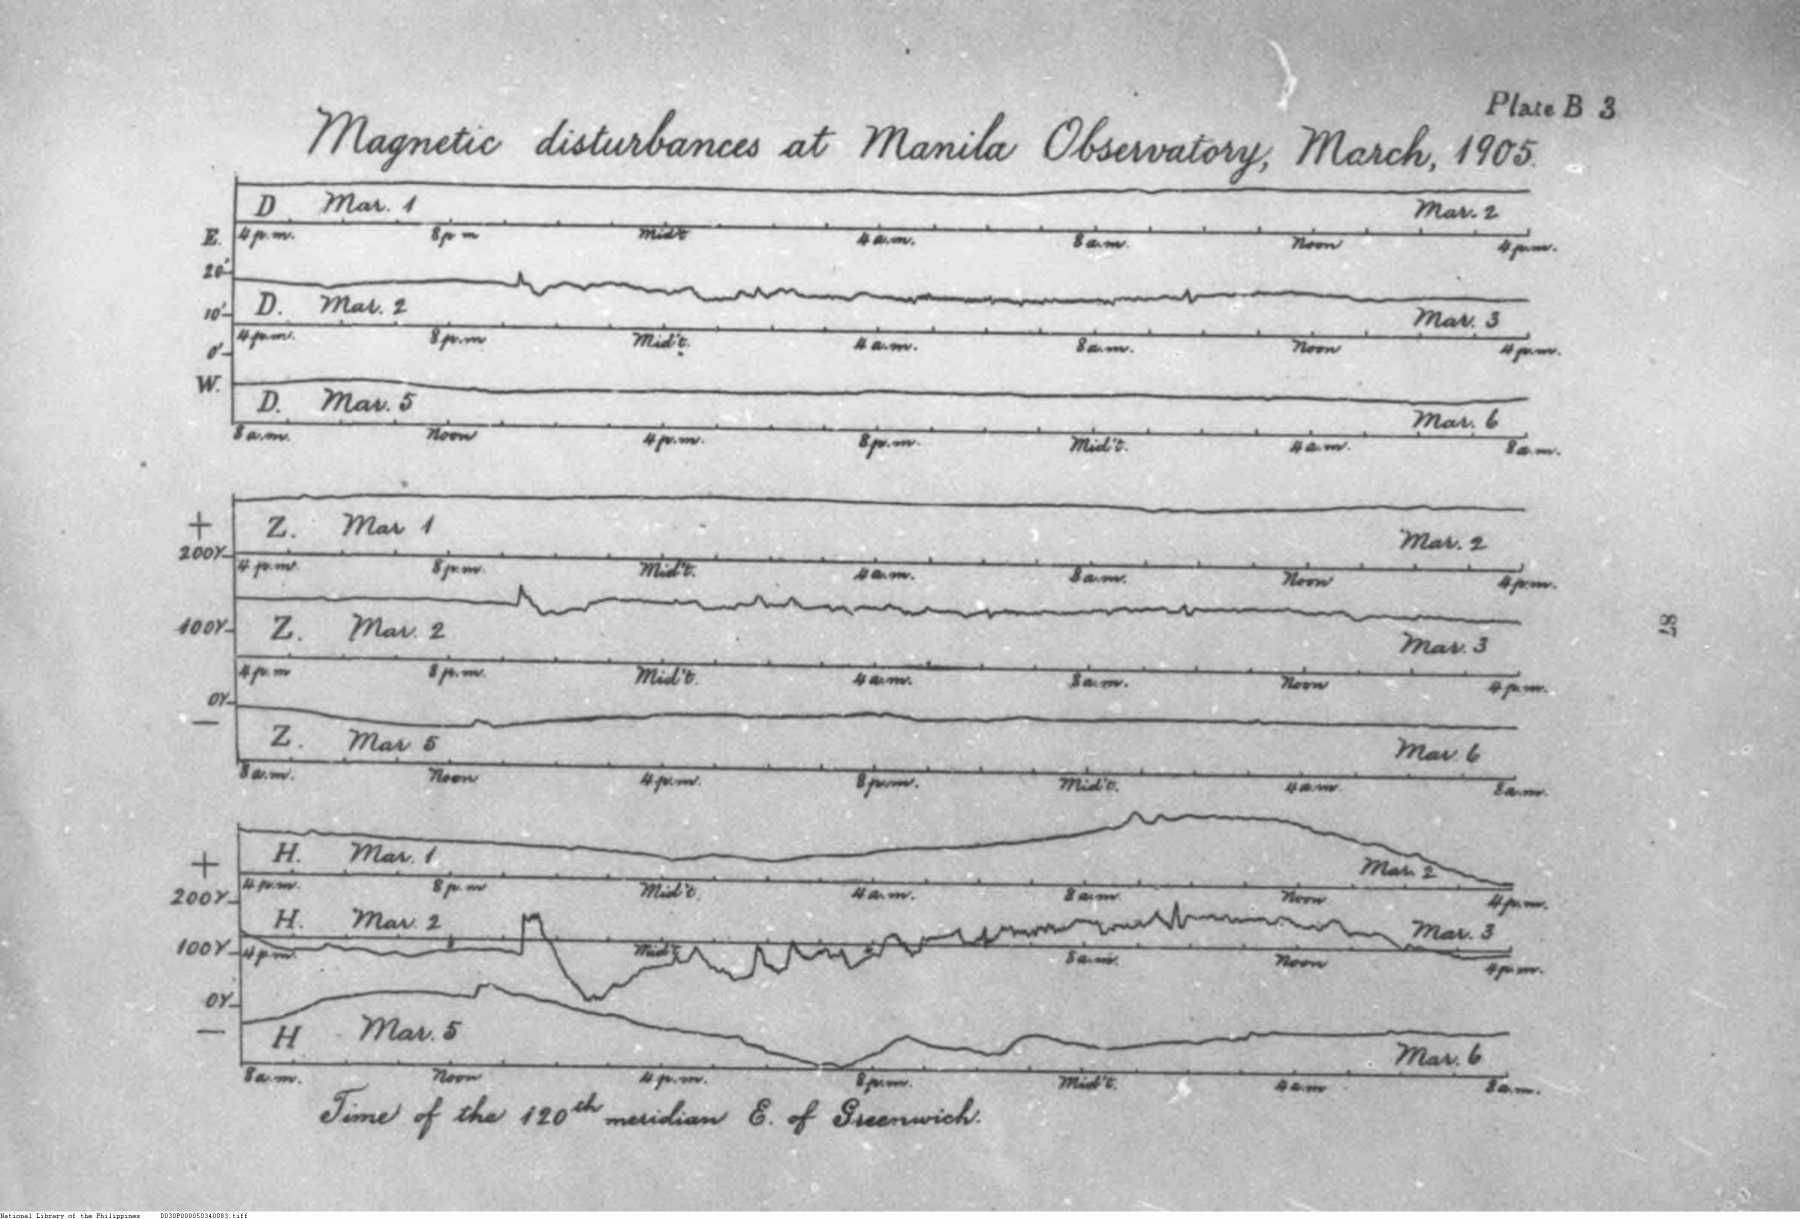 Plate B 3
Magnetic disturbances at Manila Observatory, March, 1905.
D Mar. 1 Mar. 2
E. 4 p.m. 8 p.m Mid't 4 a.m. 8 a.m. Noon 4 p.m.
20'
D. Mar. 2 Mar. 3
10'
4 p.m. 8 p.m Mid't. 4 a.m. 8 a.m. Noon 4 p.m.
0'
W.
D. Mar. 5 Mar. 6
8 a.m. Noon 4 p.m. 8 p.m. Mid't. 4 a.m. 8 a.m.
+ Z. Mar 1 Mar. 2
200γ
4 p.m. 8 p.m. Mid't. 4 a.m. 8 a.m. Noon 4 p.m.
100γ Z. Mar. 2 Mar. 3
4 p.m 8 p.m. Mid't. 4 a.m. 8 a.m. Noon 4 p.m.
0γ
− Z. Mar 5 Mar 6
8 a.m. Noon 4 p.m. 8 p.m. Mid't. 4 a.m. 8 a.m.
+ H. Mar. 1 Mar. 2
200γ 4 p.m. 8 p.m Mid't. 4 a.m. 8 a.m. Noon 4 p.m.
H. Mar. 2 Mar. 3
100γ 4 p.m. Mid't 8 a.m. Noon 4 p.m.
0γ
− H Mar. 5 Mar. 6
8 a.m. Noon 4 p.m. 8 p.m. Mid't. 4 a.m 8 a.m.
Time of the 120th meridian E. of Greenwich.
87
National Library of the Philippines D030P000050340083.tiff